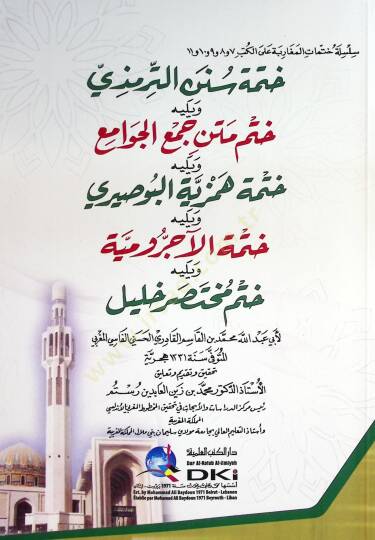 سلسلة ختمات المغاربة على الكتب ٧ و٨ و٩ و١٠ و١١
ختمة سنن الترمذي
ويليه
ختم متن جمع الجوامع
ويليه
ختمة همزية البوصيري
ويليه
ختمة الآجرومية
ويليه
ختم مختصر خليل
لأبي عبد الله محمد بن القاسم القادري الحسني الفاسي المغربي
المتوفى سنة ١٣٣١ هجرية
تحقيق وتقديم وتعليق
الأستاذ الدكتور محمد بن زين العابدين رستم
رئيس مركز الدراسات والأبحاث في تحقيق المخطوط المغربي الأندلسي
المملكة المغربية
وأستاذ التعليم العالي بجامعة مولاي سليمان بني ملال المملكة المغربية
دار الكتب العلمية
Dar Al-Kotob Al-ilmiyah
DKi
Est. by Mohammad Ali Baydoun 1971 Beirut - Lebanon
Etablie par Mohamad Ali Baydoun 1971 Beyrouth - Liban